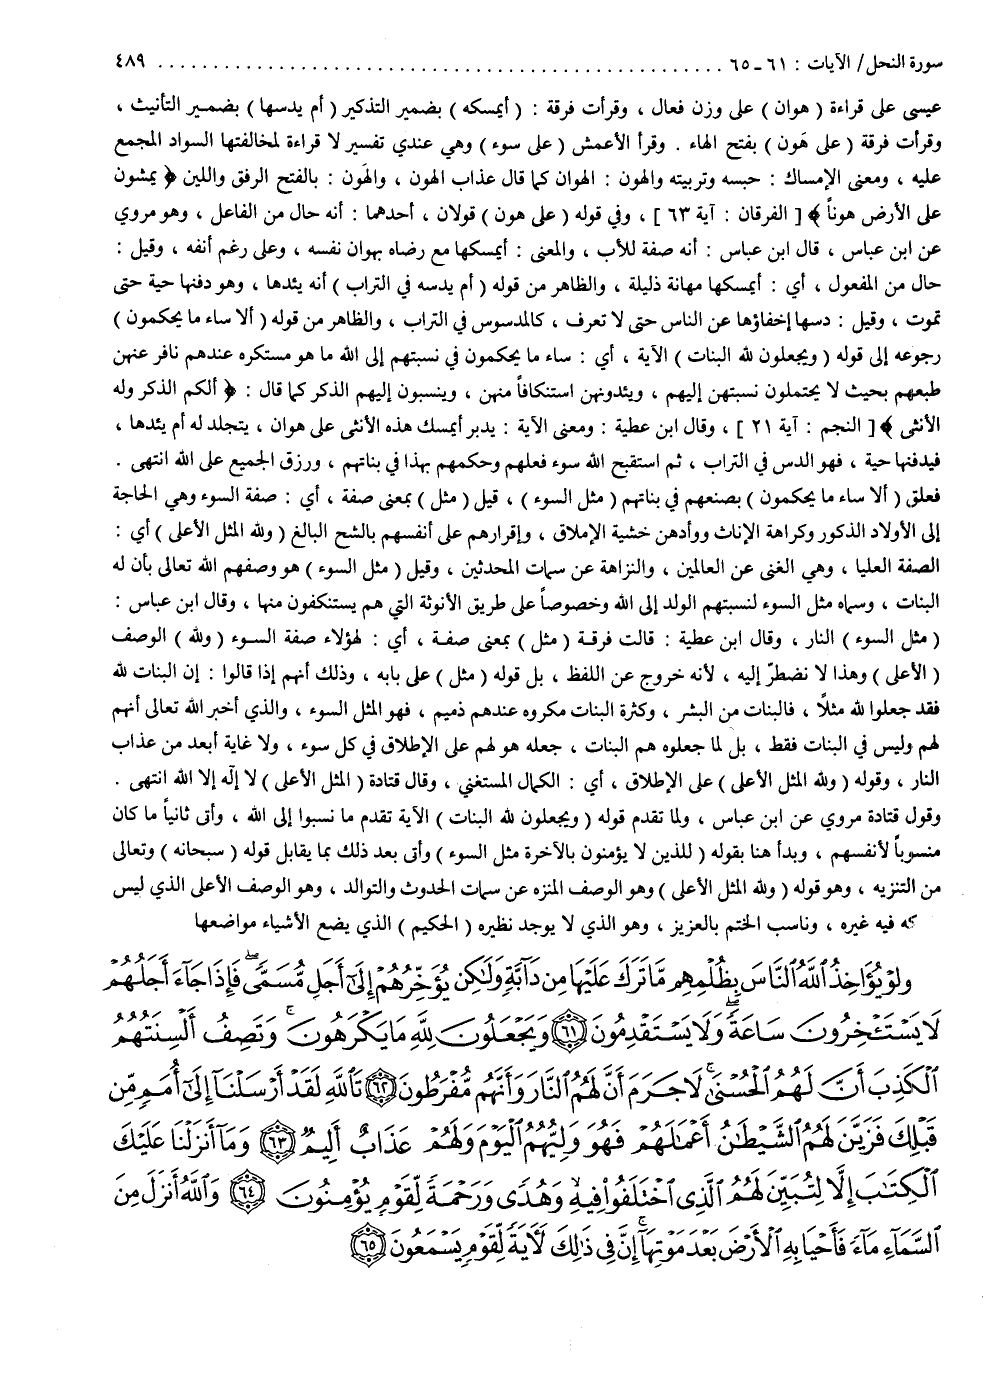 سورة النحل / الآيات : ٦١ ـ ٦٥ ........................................................ ٤٨٩
عيسى على قراءة ( هوان ) على وزن فعال ، وقرأت فرقة : ( أيمسكه ) بضمير التذكير ( أم يدسها ) بضمير التأنيث ،
وقرأت فرقة ( على هَون ) بفتح الهاء . وقرأ الأعمش ( على سوء ) وهي عندي تفسير لا قراءة لمخالفتها السواد المجمع
عليه ، ومعنى الإمساك : حبسه وتربيته والهون : الهوان كما قال عذاب الهون ، والهَون : بالفتح الرفق واللين ﴿ يمشون
على الأرض هوناً ﴾ [ الفرقان : آية ٦٣ ] ، وفي قوله ( على هون ) قولان ، أحدهما : أنه حال من الفاعل ، وهو مروي
عن ابن عباس ، قال ابن عباس : أنه صفة للأب ، والمعنى : أيمسكها مع رضاه بهوان نفسه ، وعلى رغم أنفه ، وقيل :
حال من المفعول ، أي : أيمسكها مهانة ذليلة ، والظاهر من قوله ( أم يدسه في التراب ) أنه يئدها ، وهو دفنها حية حتى
تموت ، وقيل : دسها إخفاؤها عن الناس حتى لا تعرف ، كالمدسوس في التراب ، والظاهر من قوله ( ألا ساء ما يحكمون )
رجوعه إلى قوله ( ويجعلون لله البنات ) الآية ، أي : ساء ما يحكمون في نسبتهم إلى الله ما هو مستكره عندهم نافر عنهن
طبعهم بحيث لا يحتملون نسبتهن إليهم ، ويئدونهن استنكافاً منهن ، وينسبون إليهم الذكر كما قال : ﴿ ألكم الذكر وله
الأنثى ﴾ [ النجم : آية ٢١ ] ، وقال ابن عطية : ومعنى الآية : يدبر أيمسك هذه الأنثى على هوان ، يتجلد له أم يئدها ،
فيدفنها حية ، فهو الدس في التراب ، ثم استقبح الله سوء فعلهم وحكمهم بهذا في بناتهم ، ورزق الجميع على الله انتهى .
فعلق ( ألا ساء ما يحكمون ) بصنعهم في بناتهم ( مثل السوء ) ، قيل ( مثل ) بمعنى صفة ، أي : صفة السوء وهي الحاجة
إلى الأولاد الذكور وكراهة الإناث ووأدهن خشية الإملاق ، وإقرارهم على أنفسهم بالشح البالغ ( ولله المثل الأعلى ) أي :
الصفة العليا ، وهي الغنى عن العالمين ، والنزاهة عن سمات المحدثين ، وقيل ( مثل السوء ) هو وصفهم الله تعالى بأن له
البنات ، وسماه مثل السوء لنسبتهم الولد إلى الله وخصوصاً على طريق الأنوثة التي هم يستنكفون منها ، وقال ابن عباس :
( مثل السوء ) النار ، وقال ابن عطية : قالت فرقة ( مثل ) بمعنى صفة ، أي : لهؤلاء صفة السوء ( ولله ) الوصف
( الأعلى ) وهذا لا نضطرّ إليه ، لأنه خروج عن اللفظ ، بل قوله ( مثل ) على بابه ، وذلك أنهم إذا قالوا : إن البنات لله
فقد جعلوا لله مثلاً ، فالبنات من البشر ، وكثرة البنات مكروه عندهم ذميم ، فهو المثل السوء ، والذي أخبر الله تعالى أنهم
لهم وليس في البنات فقط ، بل لما جعلوه هم البنات ، جعله هو لهم على الإطلاق في كل سوء ، ولا غاية أبعد من عذاب
النار ، وقوله ( ولله المثل الأعلى ) على الإطلاق ، أي : الكمال المستغني ، وقال قتادة ( المثل الأعلى ) لا إلٓه إلا الله انتهى .
وقول قتادة مروي عن ابن عباس ، ولما تقدم قوله ( ويجعلون لله البنات ) الآية تقدم ما نسبوا إلى الله ، وأتى ثانياً ما كان
منسوباً لأنفسهم ، وبدأ هنا بقوله ( للذين لا يؤمنون بالآخرة مثل السوء ) وأتى بعد ذلك بما يقابل قوله ( سبحانه ) وتعالى
من التنزيه ، وهو قوله ( ولله المثل الأعلى ) وهو الوصف المنزه عن سمات الحدوث والتوالد ، وهو الوصف الأعلى الذي ليس
كه فيه غيره ، وناسب الختم بالعزيز ، وهو الذي لا يوجد نظيره ( الحكيم ) الذي يضع الأشياء مواضعها
وَلَوْ يُؤَاخِذُ ٱللَّهُ ٱلنَّاسَ بِظُلْمِهِم مَّا تَرَكَ عَلَيْهَا مِن دَآبَّةٍ وَلَٰكِن يُؤَخِّرُهُمْ إِلَىٰٓ أَجَلٍ مُّسَمًّى ۖ فَإِذَا جَآءَ أَجَلُهُمْ
لَا يَسْتَـْٔخِرُونَ سَاعَةً ۖ وَلَا يَسْتَقْدِمُونَ ﴿٦١﴾ وَيَجْعَلُونَ لِلَّهِ مَا يَكْرَهُونَ ۚ وَتَصِفُ أَلْسِنَتُهُمُ
ٱلْكَذِبَ أَنَّ لَهُمُ ٱلْحُسْنَىٰ ۚ لَا جَرَمَ أَنَّ لَهُمُ ٱلنَّارَ وَأَنَّهُم مُّفْرَطُونَ ﴿٦٢﴾ تَٱللَّهِ لَقَدْ أَرْسَلْنَآ إِلَىٰٓ أُمَمٍ مِّن
قَبْلِكَ فَزَيَّنَ لَهُمُ ٱلشَّيْطَٰنُ أَعْمَٰلَهُمْ فَهُوَ وَلِيُّهُمُ ٱلْيَوْمَ وَلَهُمْ عَذَابٌ أَلِيمٌ ﴿٦٣﴾ وَمَآ أَنزَلْنَا عَلَيْكَ
ٱلْكِتَٰبَ إِلَّا لِتُبَيِّنَ لَهُمُ ٱلَّذِى ٱخْتَلَفُوا۟ فِيهِ ۙ وَهُدًى وَرَحْمَةً لِّقَوْمٍ يُؤْمِنُونَ ﴿٦٤﴾ وَٱللَّهُ أَنزَلَ مِنَ
ٱلسَّمَآءِ مَآءً فَأَحْيَا بِهِ ٱلْأَرْضَ بَعْدَ مَوْتِهَآ ۚ إِنَّ فِى ذَٰلِكَ لَءَايَةً لِّقَوْمٍ يَسْمَعُونَ ﴿٦٥﴾